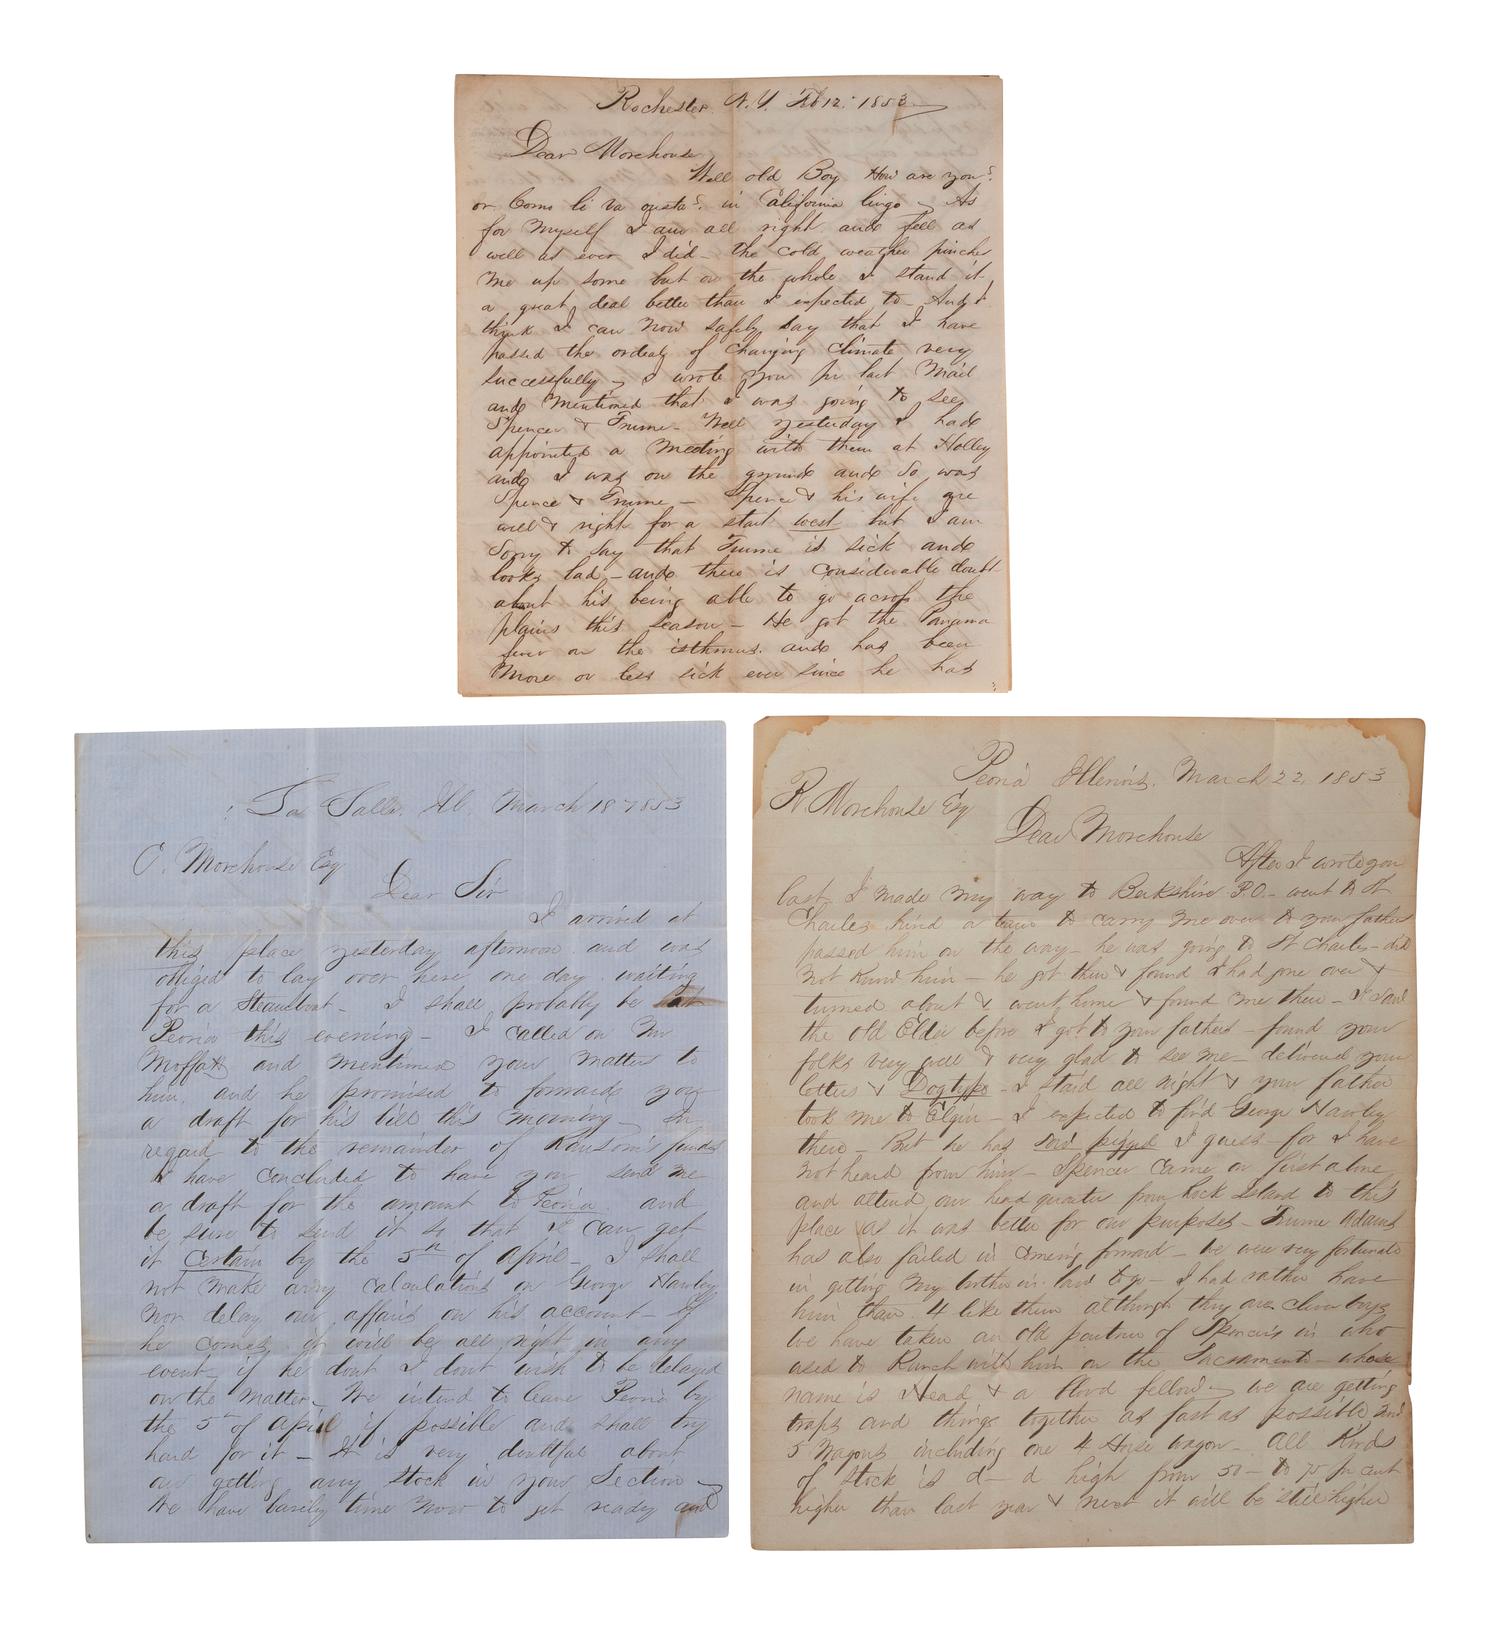 Rochester. N.Y. Feb 12. 1853
Dear Morehouse
Well old Boy How are you?
or Como li va usta? in California lingo - As
for Myself I am all right and feel as
well as ever I did - the cold weather pinches
Me up some but on the whole I stand it
a great deal better than I expected to - And I
think I can Now safely say that I have
passed the ordeal of Changing Climate very
successfully - I wrote you pr last Mail
and Mentioned that I was going to see
Spencer & Trume - Well yesterday I had
appointed a Meeting with them at Holley
and I was on the ground and So was
Spence & Trume - Spence & his wife are
well & right for a start west but I am
Sorry to Say that Trume is sick and
looks bad - and there is Considerable doubt
about his being able to go across the
plains this Season - He got the Panama
fever on the isthmus. and has been
More or less sick ever since he has
La Salle. Ill. March 18 1853
O. Morehouse Esq
Dear Sir
I arrived at
this place yesterday afternoon and was
obliged to lay over here one day waiting
for a Steamboat - I shall probably be
Peoria this evening - I called on Mr
Moffatt and mentioned your Matter to
him, and he promised to forward you
a draft for his bill this Morning - In
regard to the remainder of Ransom's funds
I have concluded to have you send me
a draft for the amount to Peoria and
be sure to send it so that I can get
it Certain by the 5th of April - I shall
not make any calculations on George Hawley
nor delay our affairs on his account - If
he comes it will be all right in any
event - if he dont I dont wish to be delayed
on the Matter - We intend to leave Peoria by
the 5th of April if possible and shall try
hard for it - It is very doubtful about
our getting any stock in your Section -
We have barely time Now to get ready and
Peoria Illinois. March 22, 1853
R. Morehouse Esq
Dear Morehouse
After I wrote you
last I made my way to Berkshire P.O. - went to St
Charles hired a team to carry me over to your fathers
passed him on the way - he was going to St Charles - did
not know him - he got there & found I had gone over &
turned about & went home & found me there - I saw
the old Elder before I got to your fathers - found your
folks very well & very glad to see me - delivered your
letters & Dogtype - I staid all night & your father
took me to Elgin - I expected to find George Hawley
there - But he has I guess - for I have
not heard from him - Spencer came on first alone
and altered our head quarters from Rock Island to this
place as it was better for our purposes - Trume Adams
has also failed in coming forward - We were very fortunate
in getting my brother in law to go - I had rather have
him than 4 like them although they are clever boys
We have taken an old partner of Spencers in who
used to Ranch with him on the Sacramento - whose
name is Head & a Good fellow - We are getting
traps and things together as fast as possible and
5 Wagons including one 4 Horse wagon - All Kinds
of stock is d--d high from 50 - to 75 pr cent
higher than last year & next it will be still higher